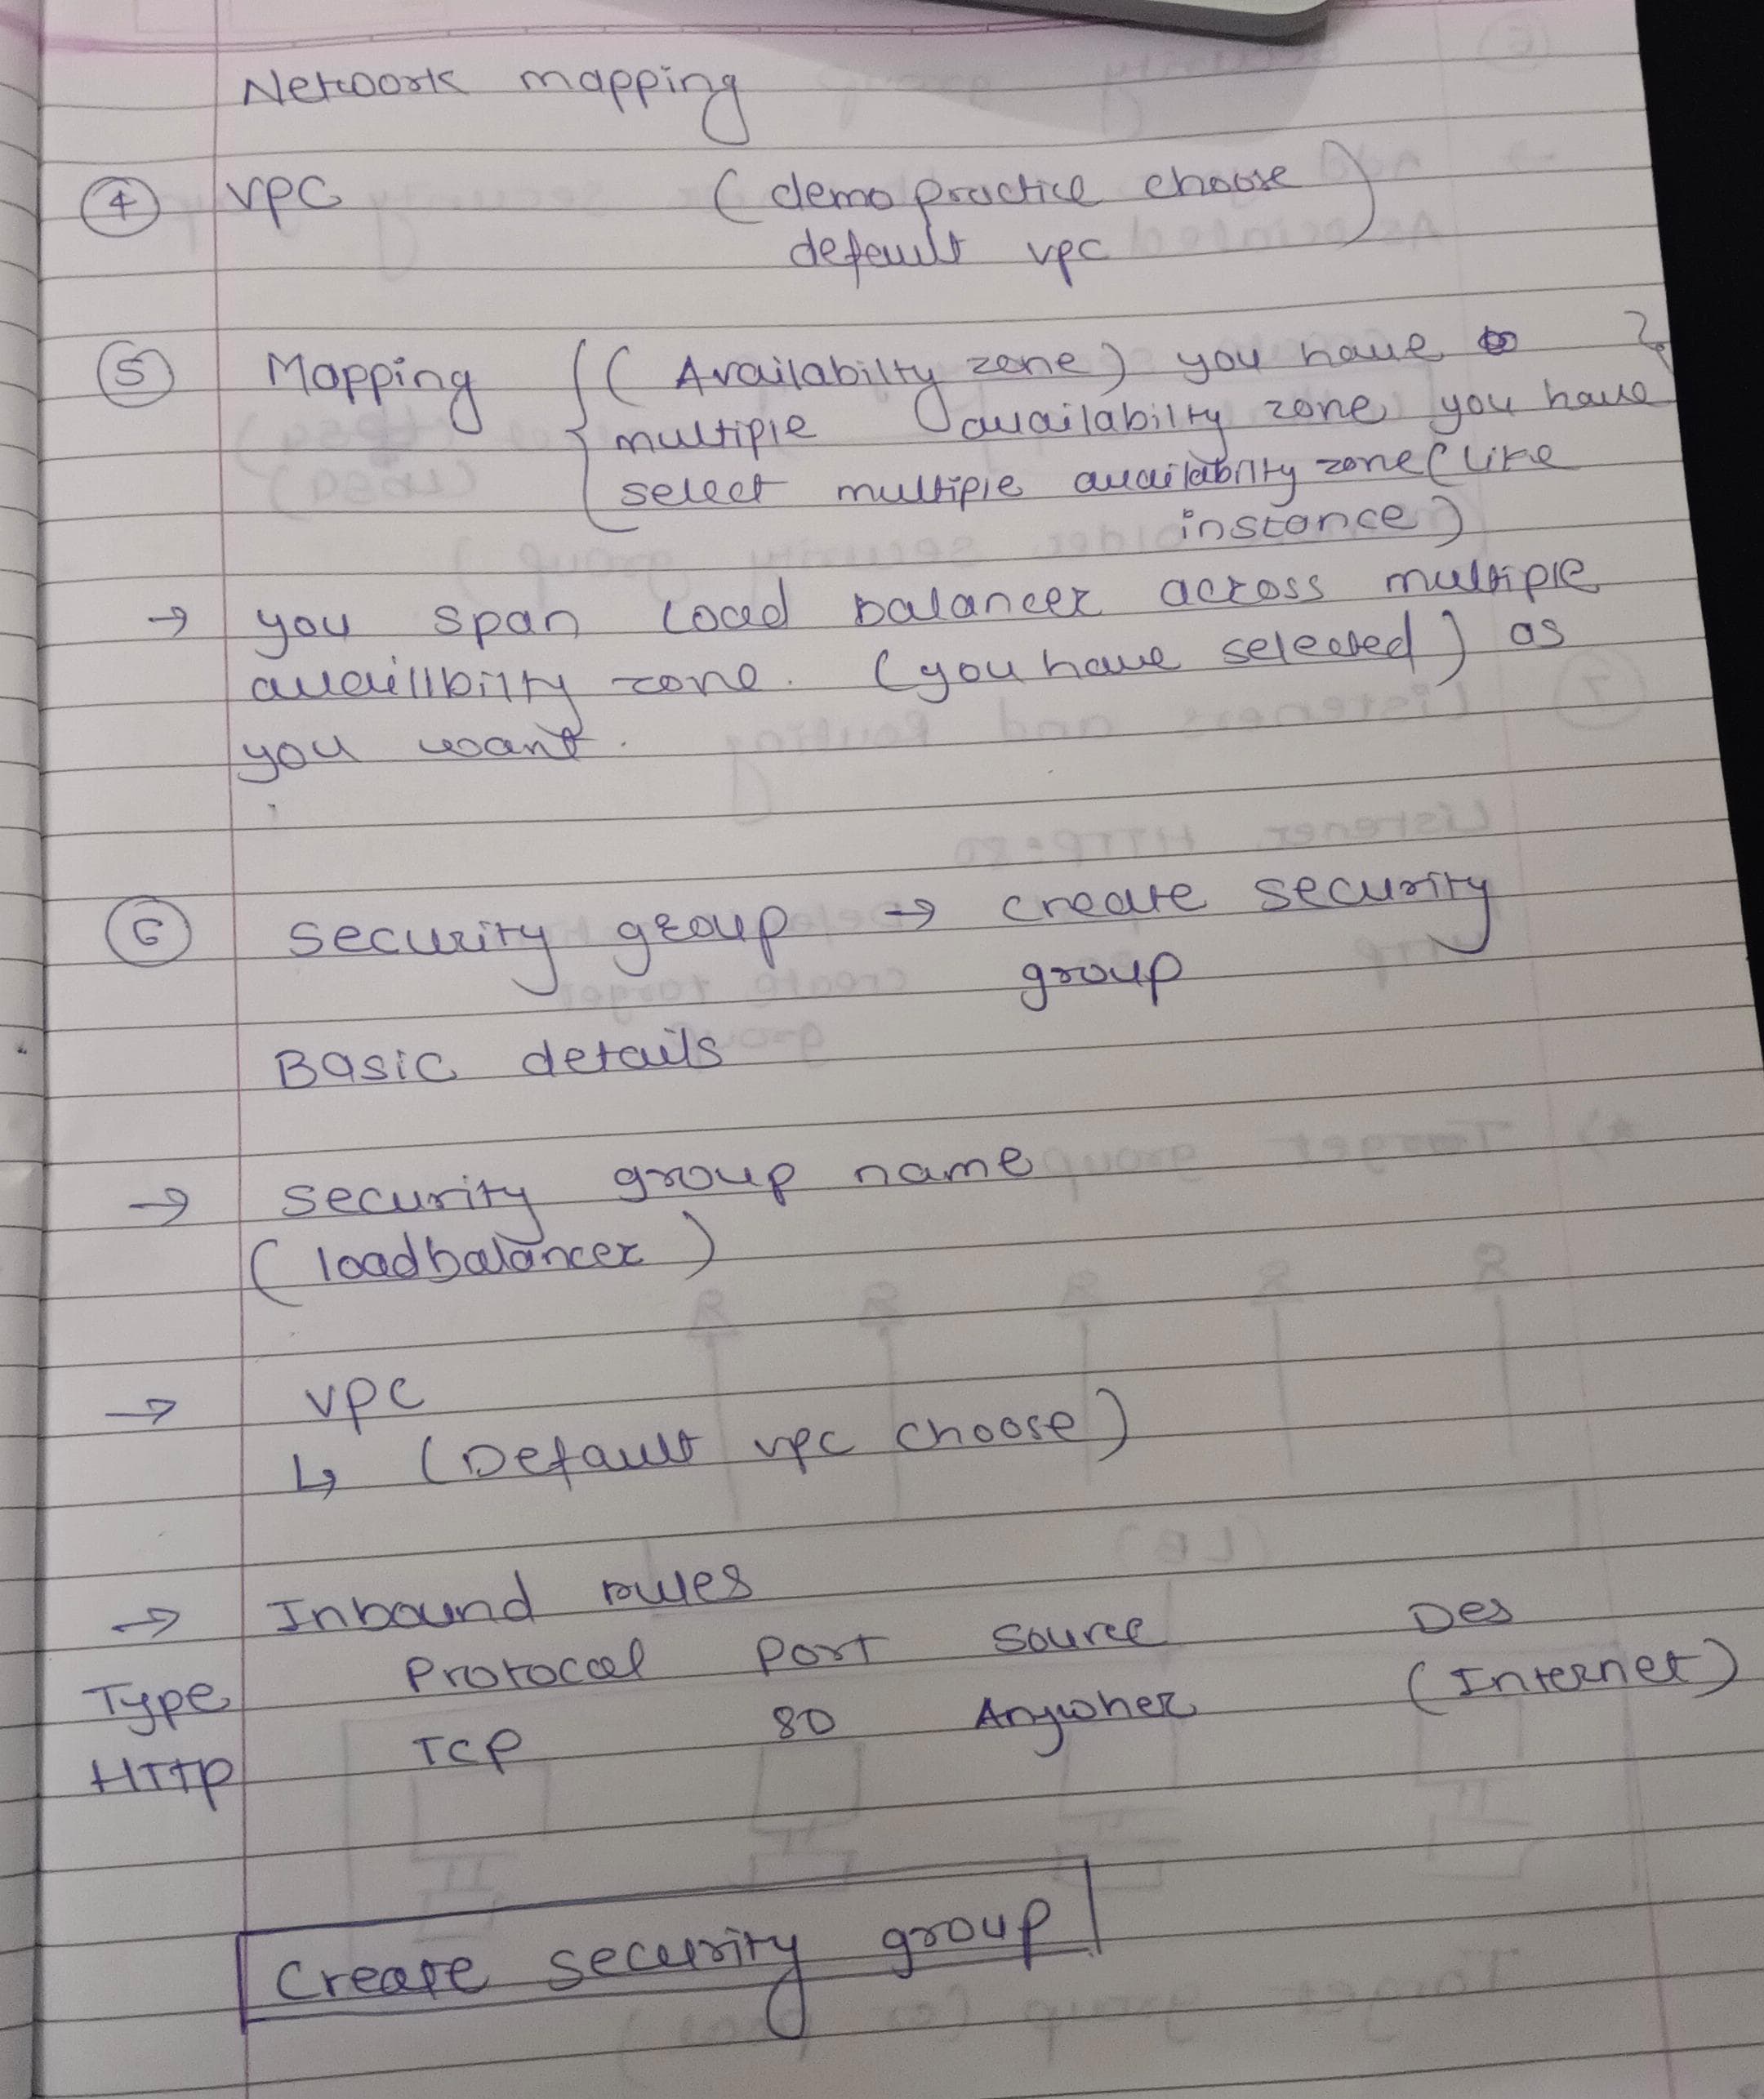 Network mapping
④ VPC (demo practice choose
default vpc)
⑤ Mapping {(Availabilty zone) you have }
multiple availability zone you have
select multiple availability zone (like
instance)
→ you span load balancer across multiple
availlbility zone. (you have selected) as
you want.
⑥ security group → create security
group
Basic details
→ security group name
(loadbalancer)
→ vpc
↳ (Default vpc choose)
→ Inbound rules
Type Protocol Port Source Des
HTTP TCP 80 Anywher (Internet)
Create security group